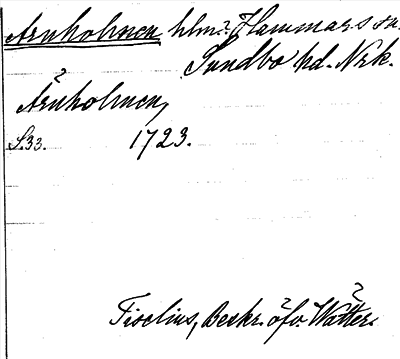 Årnholmen hlm? Hammars sn.
Sundbo hd. Nrk.
Årnholmen,
S.33. 1723.
Tiselius, Beskr. öfv. Wätter.